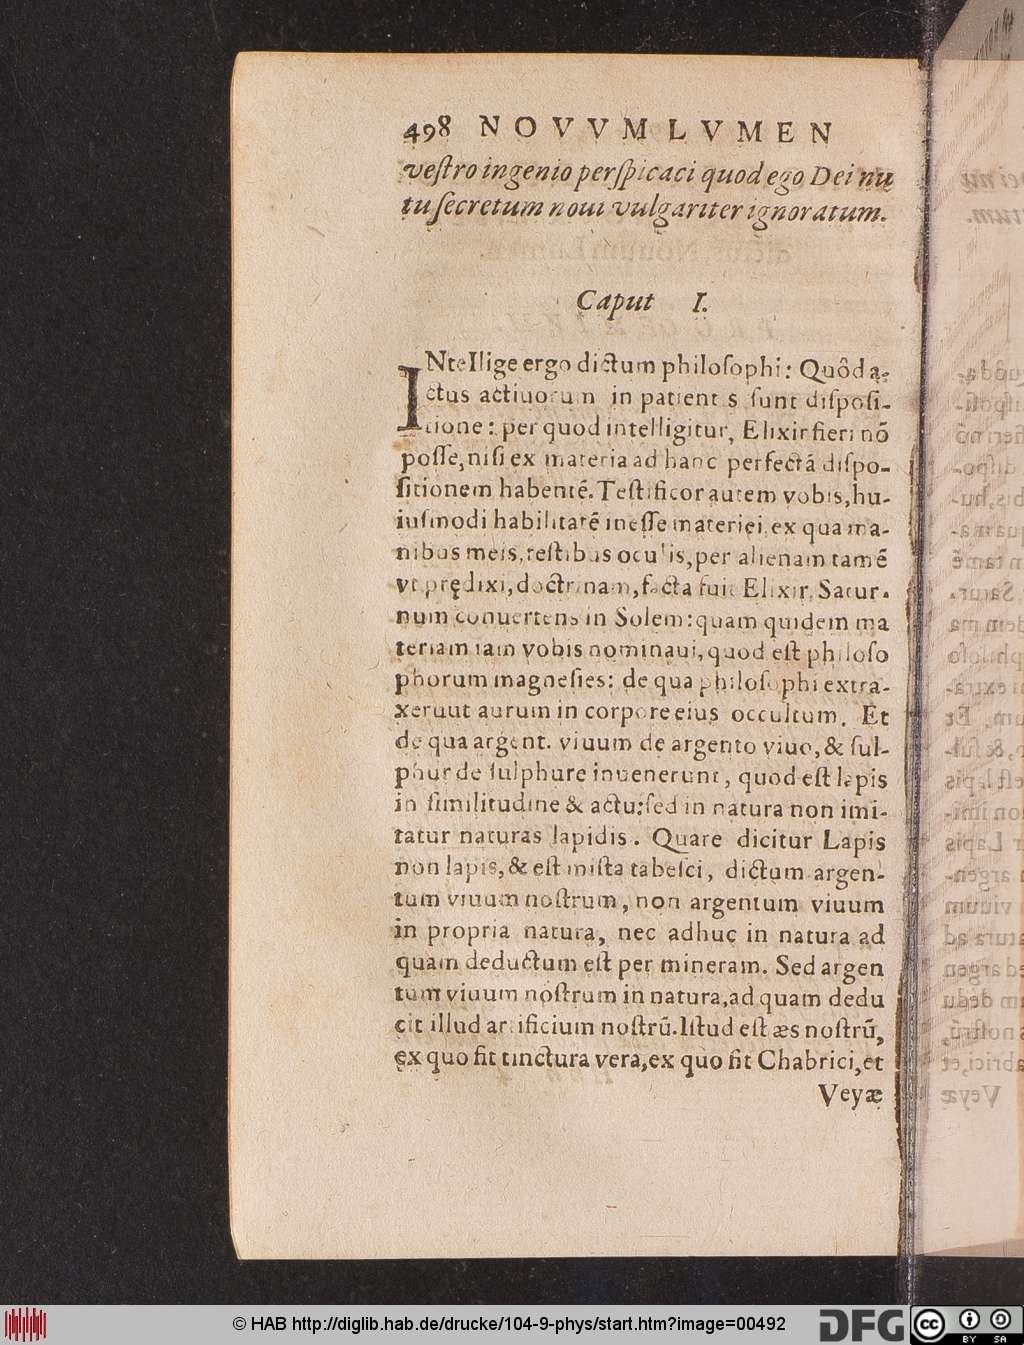 498 NOVVM LVMEN
vestro ingenio perspicaci quod ego Dei nu
tu secretum noui vulgariter ignoratum.
Caput I.
INtellige ergo dictum philosophi: Quôd a-
ctus actiuorum in patientis sunt disposi-
tione: per quod intelligitur, Elixir fieri nõ
posse, nisi ex materia ad hanc perfectã dispo-
sitionem habentẽ. Testificor autem vobis, hu-
iusmodi habilitatẽ inesse materiei, ex qua ma-
nibus meis, testibus oculis, per alienam tamẽ
vt prędixi, doctrinam, facta fuit Elixir, Satur-
num conuertens in Solem: quam quidem ma
teriam iam vobis nominaui, quod est philoso
phorum magnesies: de qua philosophi extra-
xeruut aurum in corpore eius occultum. Et
de qua argent. viuum de argento viuo, & sul-
phur de sulphure inuenerunt, quod est lapis
in similitudine & actu: sed in natura non imi-
tatur naturas lapidis. Quare dicitur Lapis
non lapis, & est mista tabesci, dictum argen-
tum viuum nostrum, non argentum viuum
in propria natura, nec adhuc in natura ad
quam deductum est per mineram. Sed argen
tum viuum nostrum in natura, ad quam dedu
cit illud artificium nostrũ. Istud est æs nostrũ,
ex quo fit tinctura vera, ex quo fit Chabrici, et
Veyæ
© HAB http://diglib.hab.de/drucke/104-9-phys/start.htm?image=00492
DFG
cc BY SA